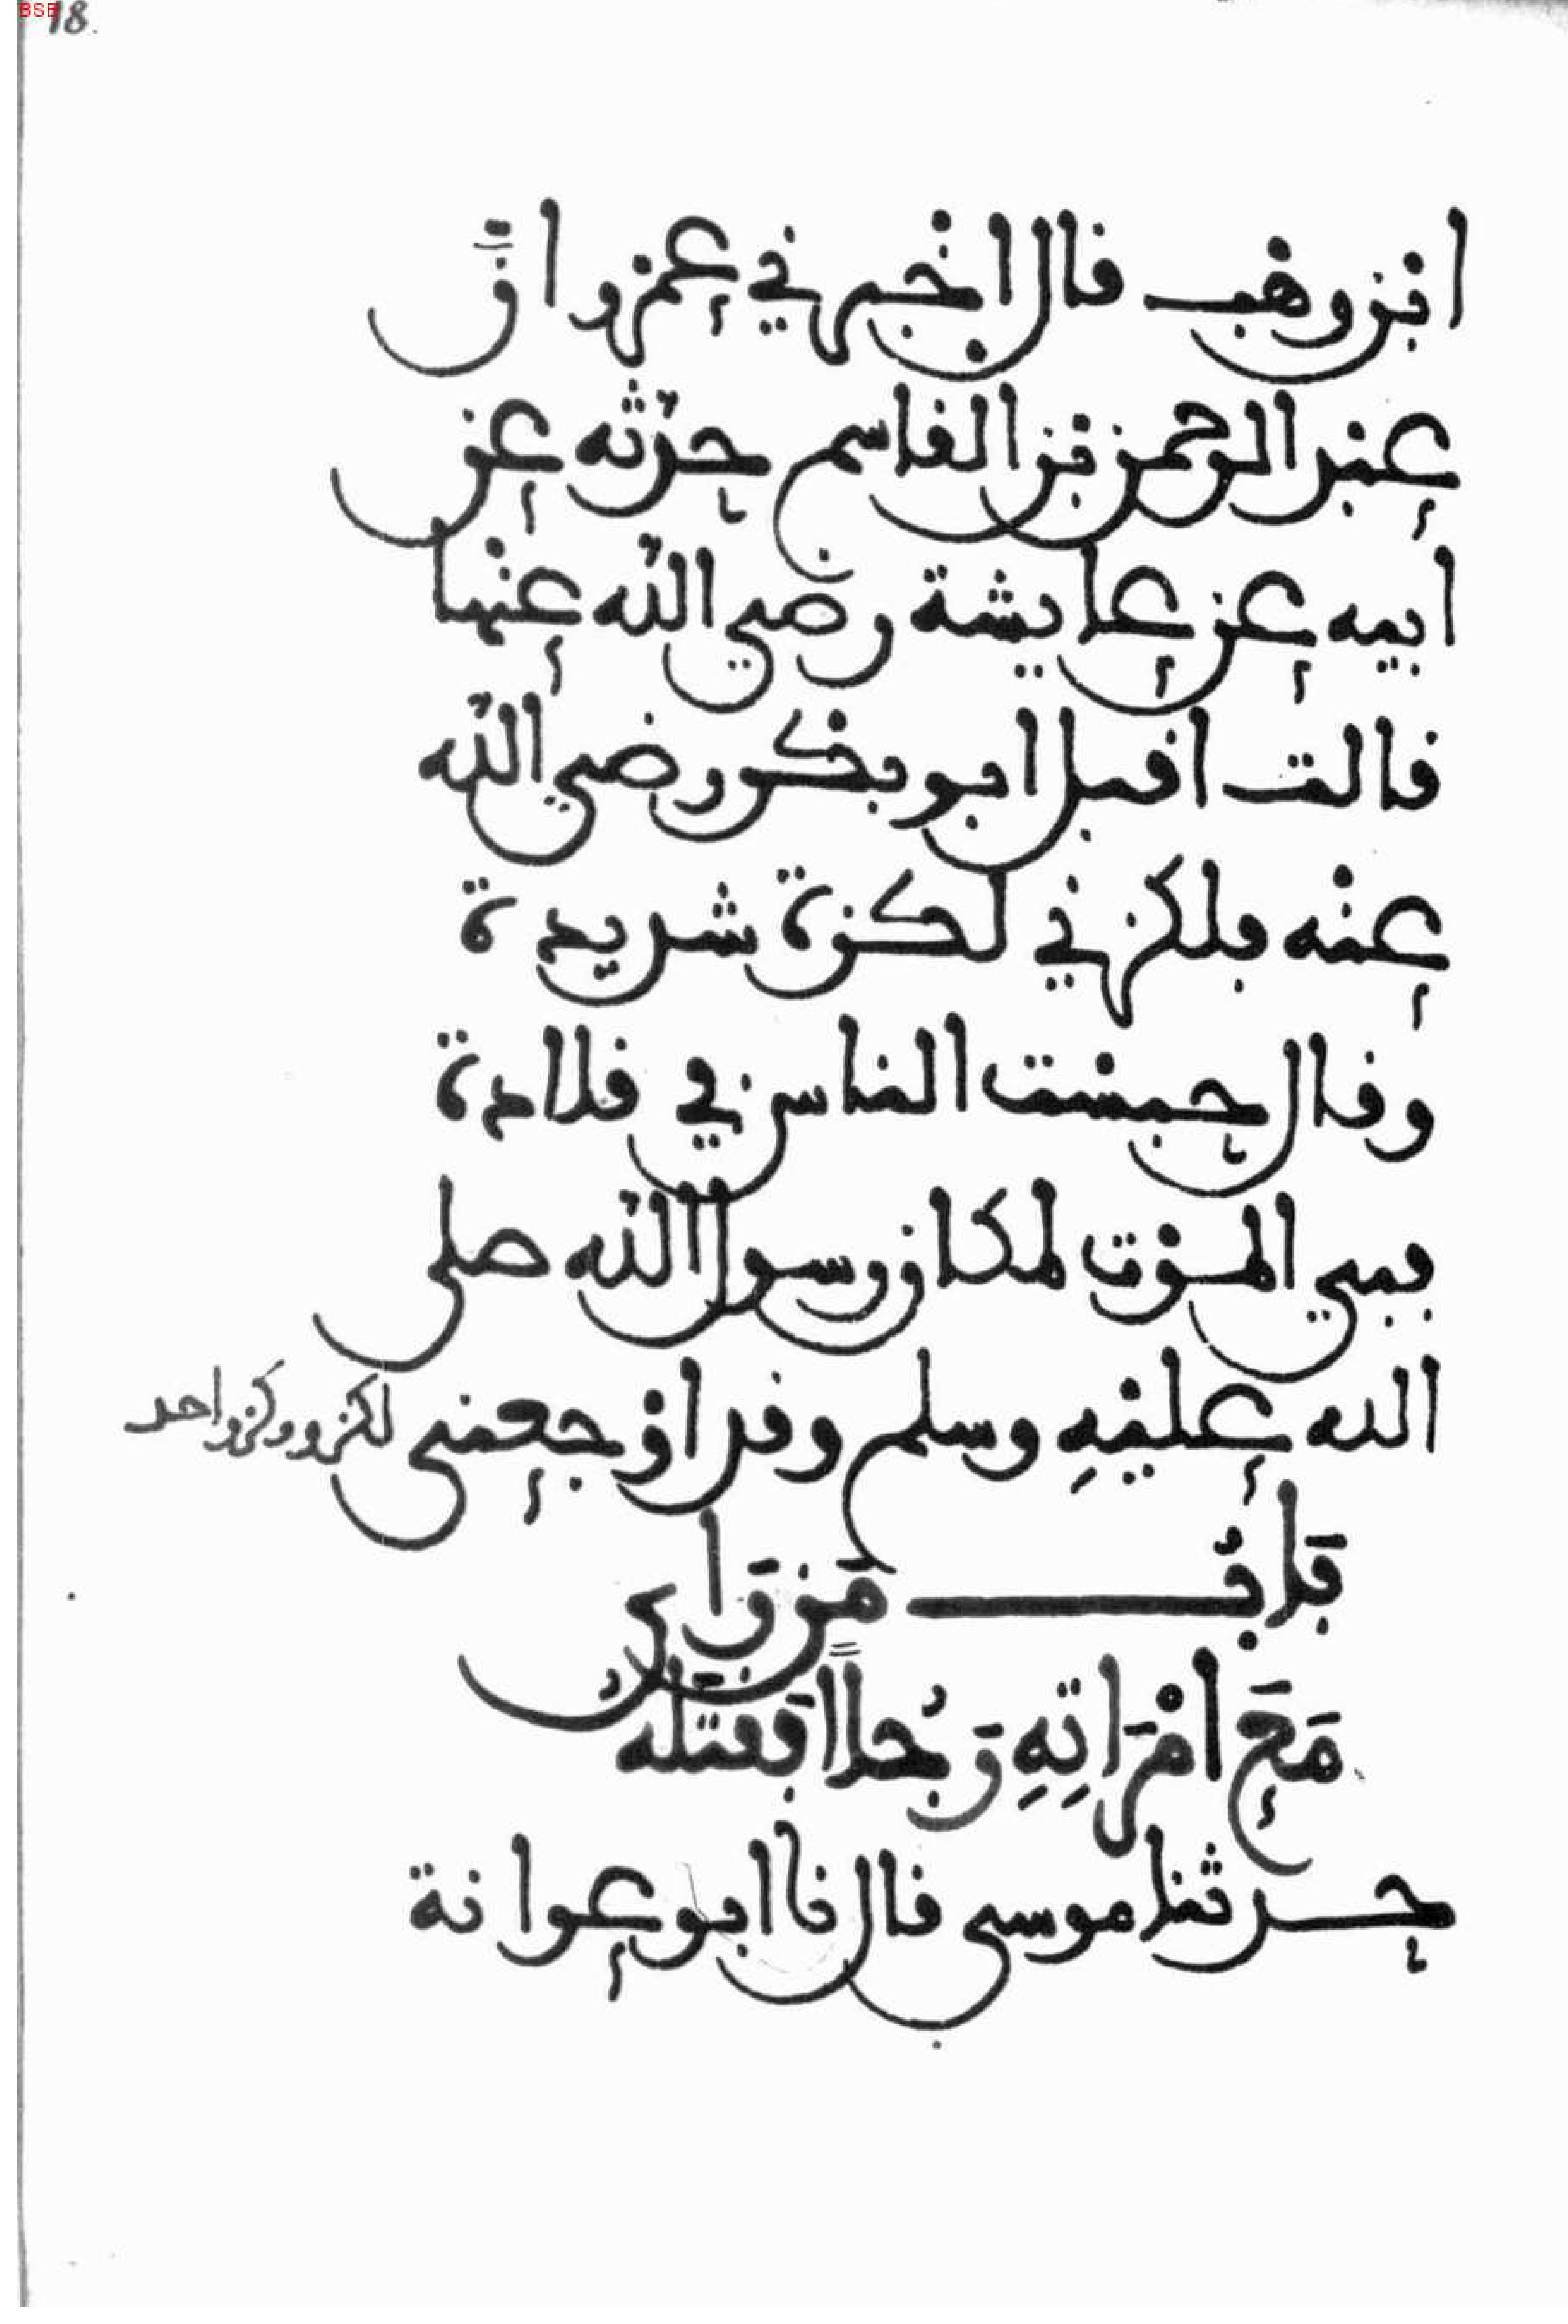 18.
ابن وهب قال اخبرني عمرو انّ
عبد الرحمن بن القاسم حدّثه عن
ابيه عن عايشة رضي اللّه عنها
قالت اقبل ابو بكر رضي اللّه
عنه فلكزني لكزة شديدة
وقال حبست الناس في قلادة
فبي الموت لمكان رسول اللّه صلى
الله عليهِ وسلم وقد اوجعني لكز ووكز واحد
بَابُ مَن رَاى
مَعَ امْرَاتِهِ رَجُلاً فَقَتَلَه
حدثنا موسى قال نا ابو عوانة